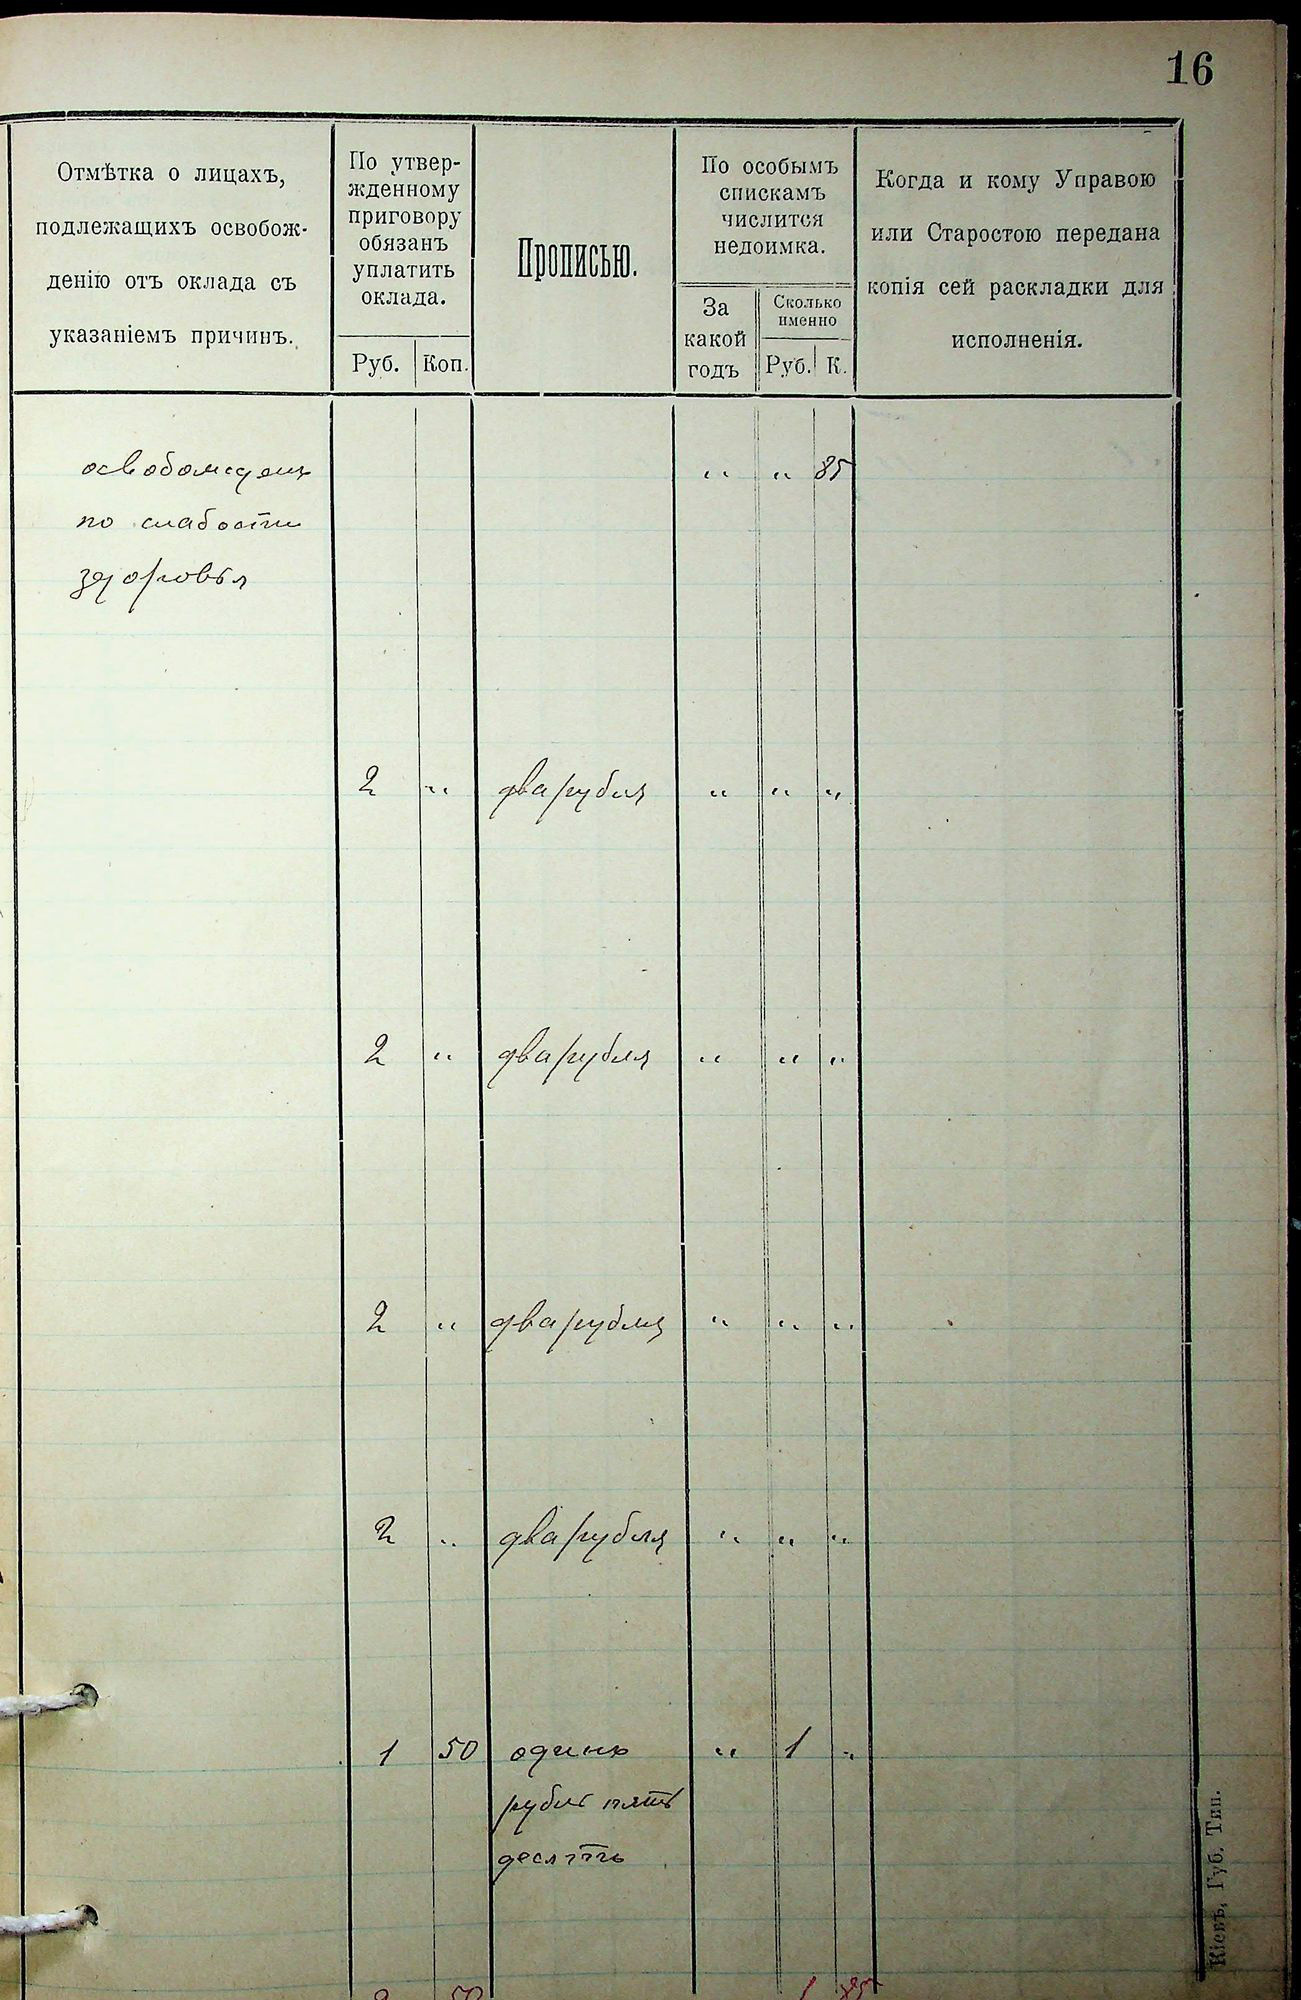 16
Отмѣтка о лицахъ,
подлежащихъ освобож-
денію отъ оклада съ
указаніемъ причинъ.
По утвер-
жденному
приговору
обязанъ
уплатить
оклада.
Руб. Коп.
Прописью.
По особымъ
спискамъ
числится
недоимка.
За
какой
годъ
Сколько
именно
Руб. К.
Когда и кому Управою
или Старостою передана
копія сей раскладки для
исполненія.
освобожденъ " " 85
по слабости
здоровья
2 " два рубля " " "
2 " два рубля " " "
2 " два рубля " " "
2 " два рубля " " "
1 50 одинъ " 1 "
рубль пять
десятъ
50 1 85
Кіевъ, Губ. Тип.